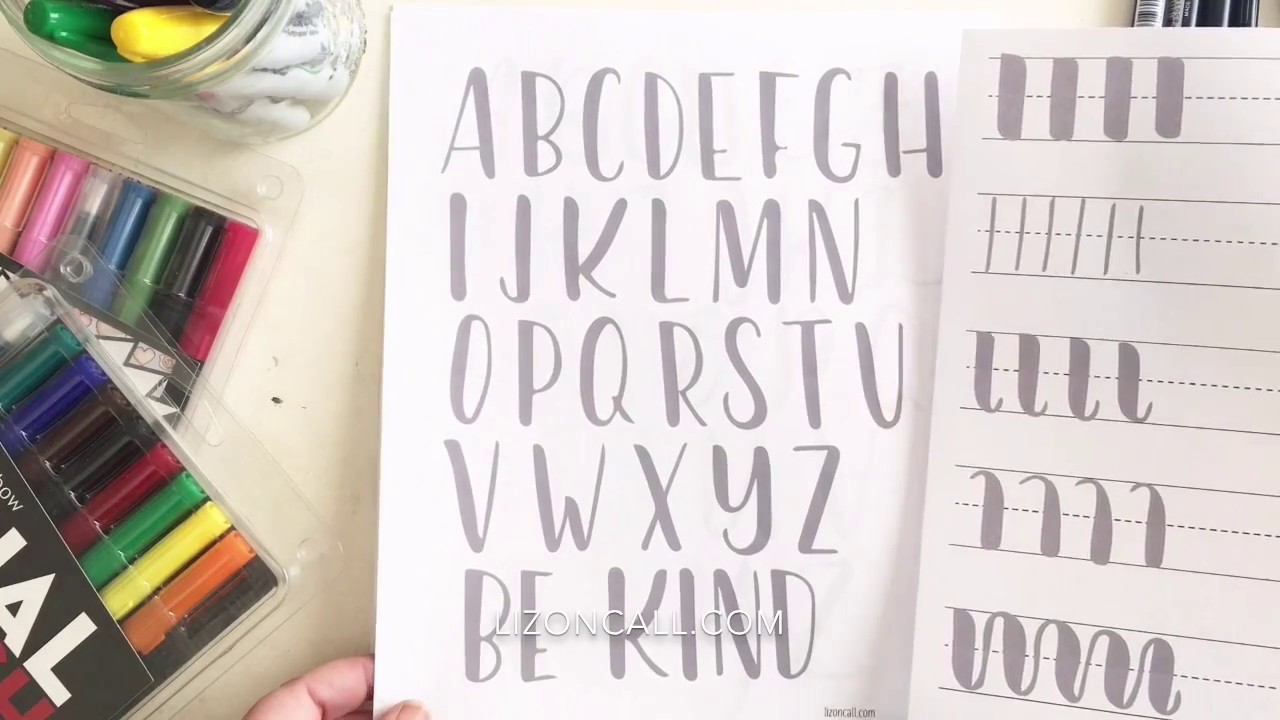 ABCDEFGH
IJKLMN
OPQRSTU
VWXYZ
BE KIND
LIZONCALL.COM
lizoncall.com